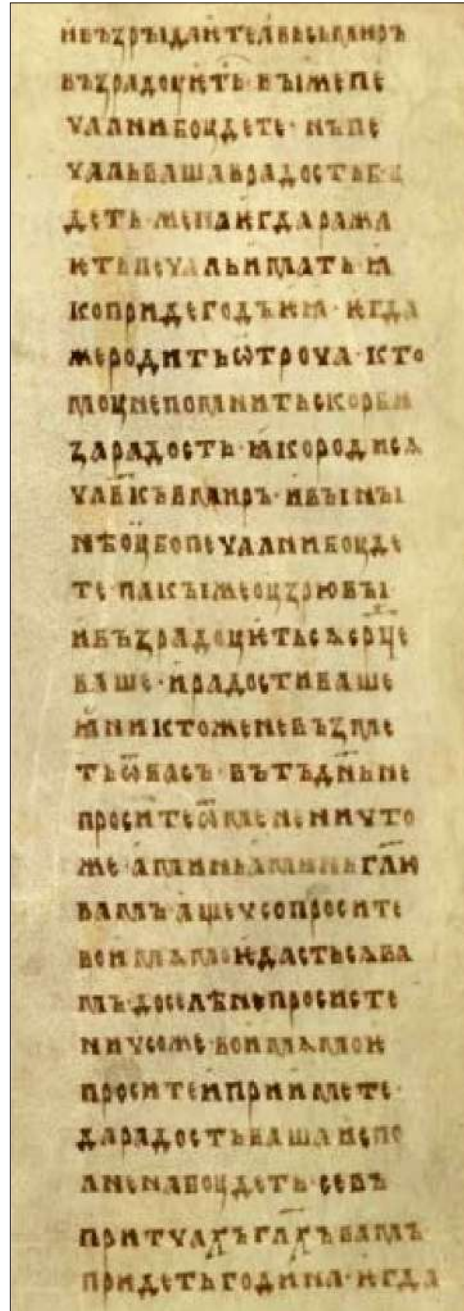 ивъꙁрыдаѥтелвьсьмиръ
въꙁрадоуѥть· вꙑжепе
чалнибоудете· нъпе
чальвашаврадостьбꙋ
деть· женаѥгдаража
ѥтьпечальимать· ꙗ
копридегодъѥꙗ· ѥгда
жеродитьѡтроча· кто
моунепомнитьскорби
ꙁарадость· ꙗкородисѧ
чл҃вкъвмиръ· ивꙑнꙑ
нѣоубопечалнибоуде
те· пакꙑжеоуꙁрювꙑ
ивъꙁрадоуѥтьсѧср҃це
ваше· ирадостиваше
ꙗниктоженевъꙁме
тьѿвасъ· вътъдн҃ьне
просите ѿмененичто
же· аминьаминьгл҃ю
вамъ· ащечсопросите
воимѧмоѥдастьсѧва
мъ· доселѣнепросисте
ничсоже· воимѧмоѥ
проситеиприимете·
дарадостьвашаиспо
лненабоудеть· севъ
притчахъгл҃хъвамъ
придетьгодина· ѥгда